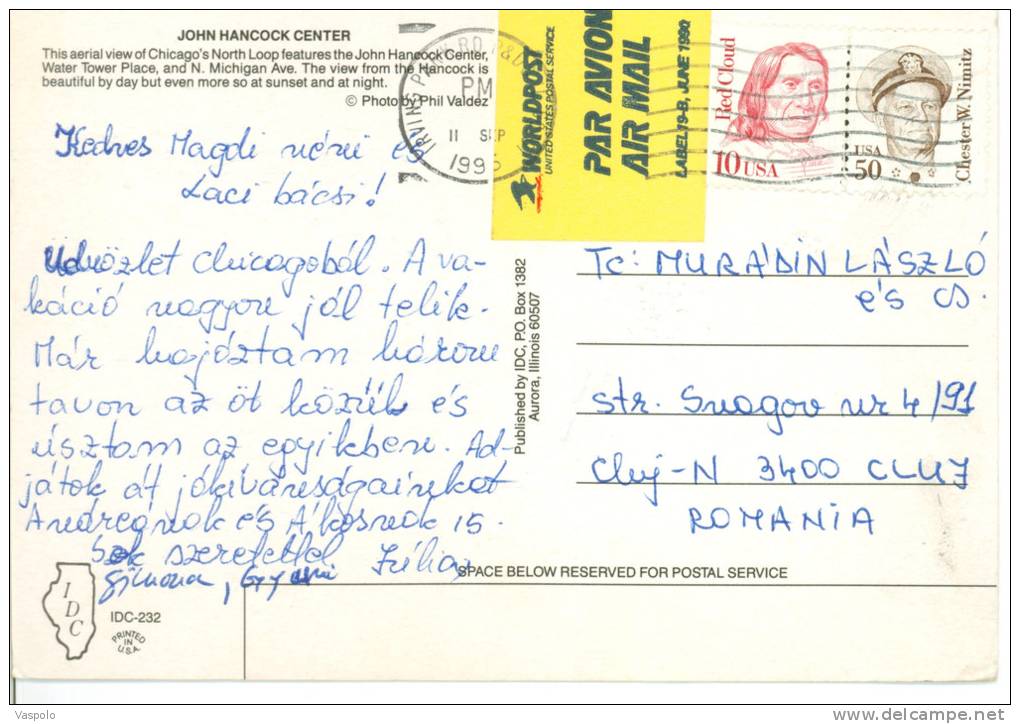 JOHN HANCOCK CENTER
This aerial view of Chicago's North Loop features the John Hancock Center,
Water Tower Place, and N. Michigan Ave. The view from the Hancock is
beautiful by day but even more so at sunset and at night.
© Photo by Phil Valdez
IRVING PARK RD
PM
11 SEP
1995
WORLDPOST
UNITED STATES POSTAL SERVICE
PAR AVION
AIR MAIL
LABEL 19-B, JUNE 1990
Red Cloud
10 USA
USA
50
Chester W. Nimitz
Kedves Magdi néni és
Laci bácsi!
Üdvözlet Chicagoból. A va-
káció nagyon jól telik.
Már hajóztam három
tavon az öt közül és
úsztam az egyikben. Ad-
játok át jókívánságainkat
Andreának és Ákosnak is.
Sok szeretettel Júlia,
Gyuri
Published by IDC, P.O. Box 1382
Aurora, Illinois 60507
To: MURÁDIN LÁSZLÓ
és cs.
str. Snagov nr 4/91
Cluj-N 3400 CLUJ
ROMANIA
SPACE BELOW RESERVED FOR POSTAL SERVICE
IDC
IDC-232
PRINTED
IN
U.S.A.
Vaspolo
delcampe.net